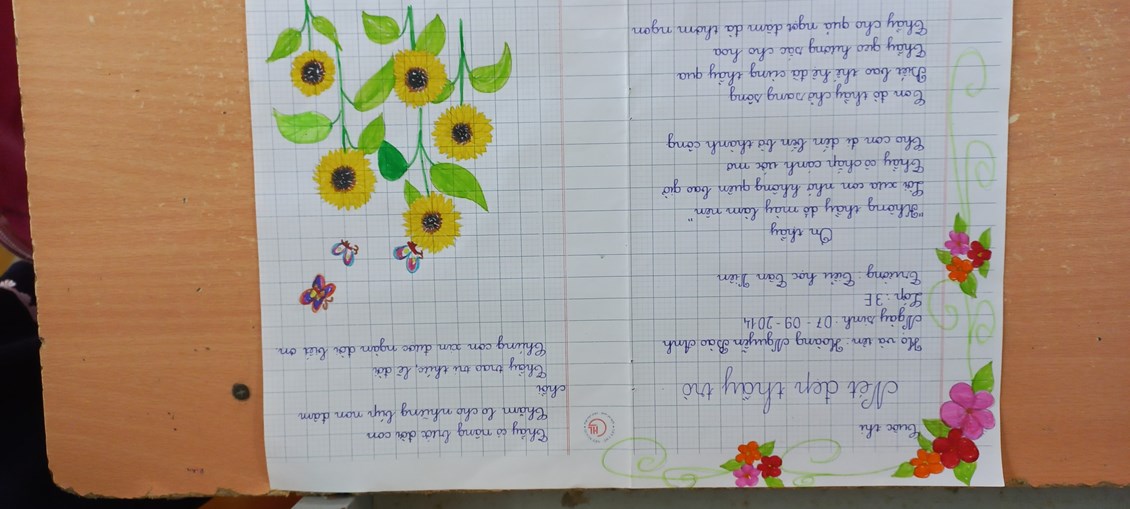 Cuộc thi
Nét đẹp thầy trò
Họ và tên: Hoàng Nguyễn Bảo Anh
Ngày sinh: 07 - 09 - 2014
Lớp: 3E
Trường: Tiểu học Tân Tiến
Ơn thầy
"Không thầy đố mày làm nên"
Lời xưa con nhớ không quên bao giờ
Thầy là chắp cánh ước mơ
Cho con đi đến bến bờ thành công
Con đò thầy chở sang sông
Biết bao thế hệ đã cùng thầy qua
Thầy gieo hương sắc cho hoa
Thầy cho quả ngọt đậm đà thơm ngon
Thầy là nắng biếc đời con
Chăm lo cho những búp non đâm
chồi
Thầy trao tri thức, lẽ đời
Chúng con xin được ngàn đời biết ơn.
HL